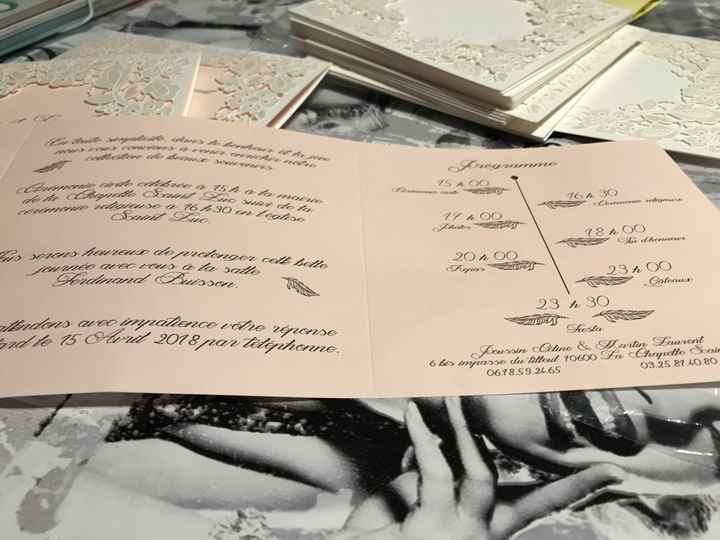 En toute simplicité dans le bonheur et la joie
nous vous convions à venir enrichir notre
collection de beaux souvenirs.
Cérémonie civile célébrée à 15 h a la mairie
de la Chapelle Saint Luc suivi de la
cérémonie religieuse à 16 h30 en l'église
Saint Luc.
serons heureux de prolonger cette belle
journée avec vous à la salle
Ferdinand Buisson.
attendons avec impatience votre réponse
tard le 15 Avril 2018 par téléphonne.
Programme
15 h 00
Cérémonie civile
16 h 30
Cérémonie religieuse
17 h 00
Photos
18 h 00
Vin d'honneur
20 h 00
Repas
23 h 00
Gâteaux
23 h 30
Fiesta
Jeussin Céline & Martin Laurent
6 bis impasse du tilleul 10600 La Chapelle Sain
06.18.59.24.65
03.25.81.40.80